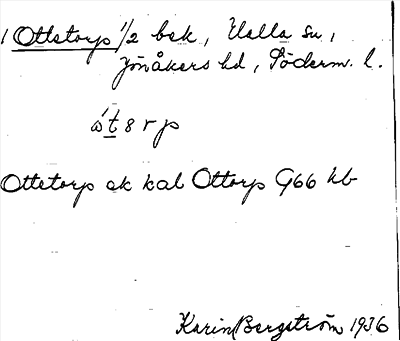 1 Ottetorp 1/2 bek, Halla sn,
Jönåkers hd, Söderm. l.
ó t 8 r p
Ottetorp ek kal Ottorp G66 hb
Karin Bergström 1936